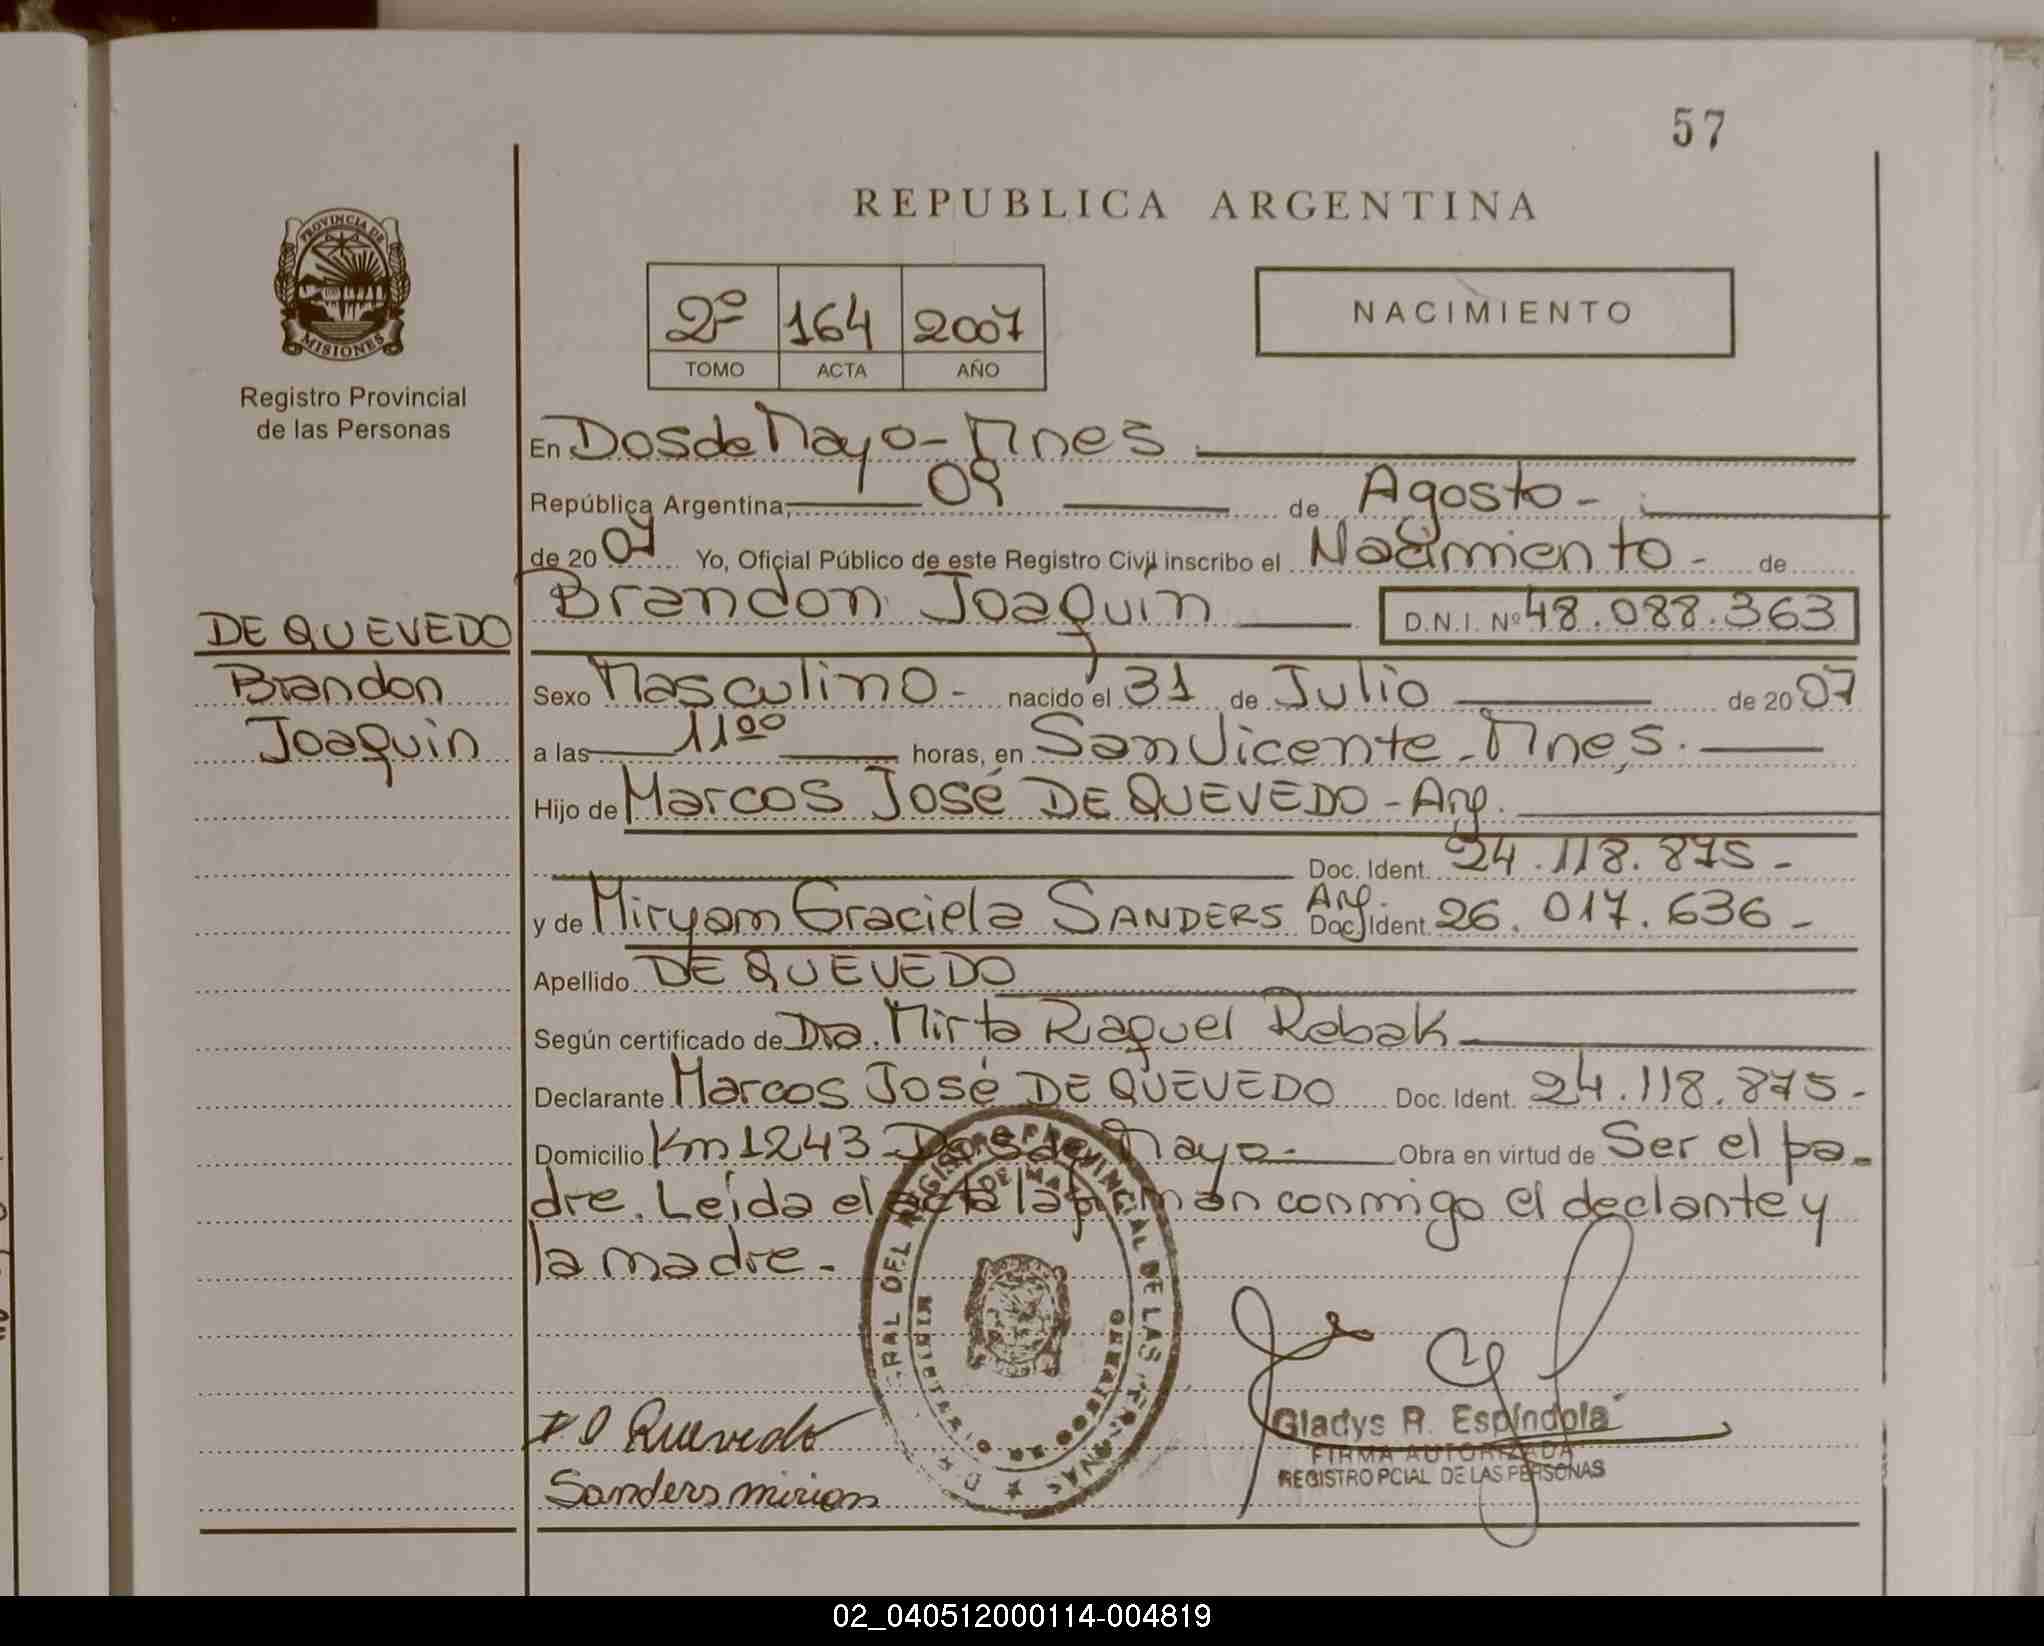 57
REPUBLICA ARGENTINA
PROVINCIA DE
MISIONES
Registro Provincial
de las Personas
2º 164 2007
TOMO ACTA AÑO
NACIMIENTO
En Dos de Mayo - Mnes
República Argentina, 09 de Agosto -
de 2007 Yo, Oficial Público de este Registro Civil inscribo el Nacimiento - de
Brandon Joaquin D.N.I. Nº 48.088.363
DE QUEVEDO
Brandon
Joaquin
Sexo Masculino - nacido el 31 de Julio de 2007
a las 11 00 horas, en San Vicente - Mnes.
Hijo de Marcos José DE QUEVEDO - Arg.
Doc. Ident. 24.118.875 -
y de Miryam Graciela SANDERS Arg. Doc. Ident. 26.017.636 -
Apellido DE QUEVEDO
Según certificado de Dra. Mirta Raquel Rebak
Declarante Marcos José DE QUEVEDO Doc. Ident. 24.118.875 -
Domicilio Km 1243 Dos de Mayo - Obra en virtud de Ser el pa-
dre. Leída el acta la firman conmigo el declante y
la madre -
Quevedo
Sanders mirian
Gladys R. Espíndola
FIRMA AUTORIZADA
REGISTRO PCIAL DE LAS PERSONAS
02_040512000114-004819